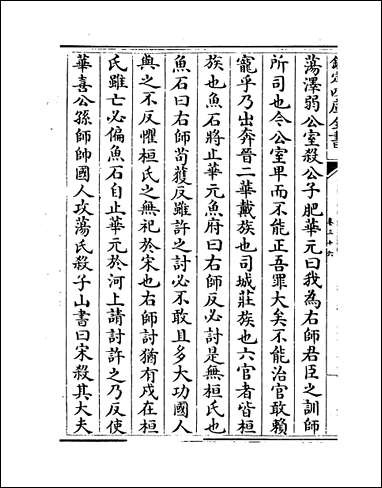 欽定四庫全書
卷二十六
蕩澤弱公室殺公子肥華元曰我為右師君臣之訓師
所司也今公室卑而不能正吾罪大矣不能治官敢賴
寵乎乃出奔晉二華戴族也司城莊族也六官者皆桓
族也魚石將止華元魚府曰右師反必討是無桓氏也
魚石曰右師苟獲反雖許之討必不敢且多大功國人
與之不反懼桓氏之無祀於宋也右師討猶有戌在桓
氏雖亡必偏魚石自止華元於河上請討許之乃反使
華喜公孫師帥國人攻蕩氏殺子山書曰宋殺其大夫